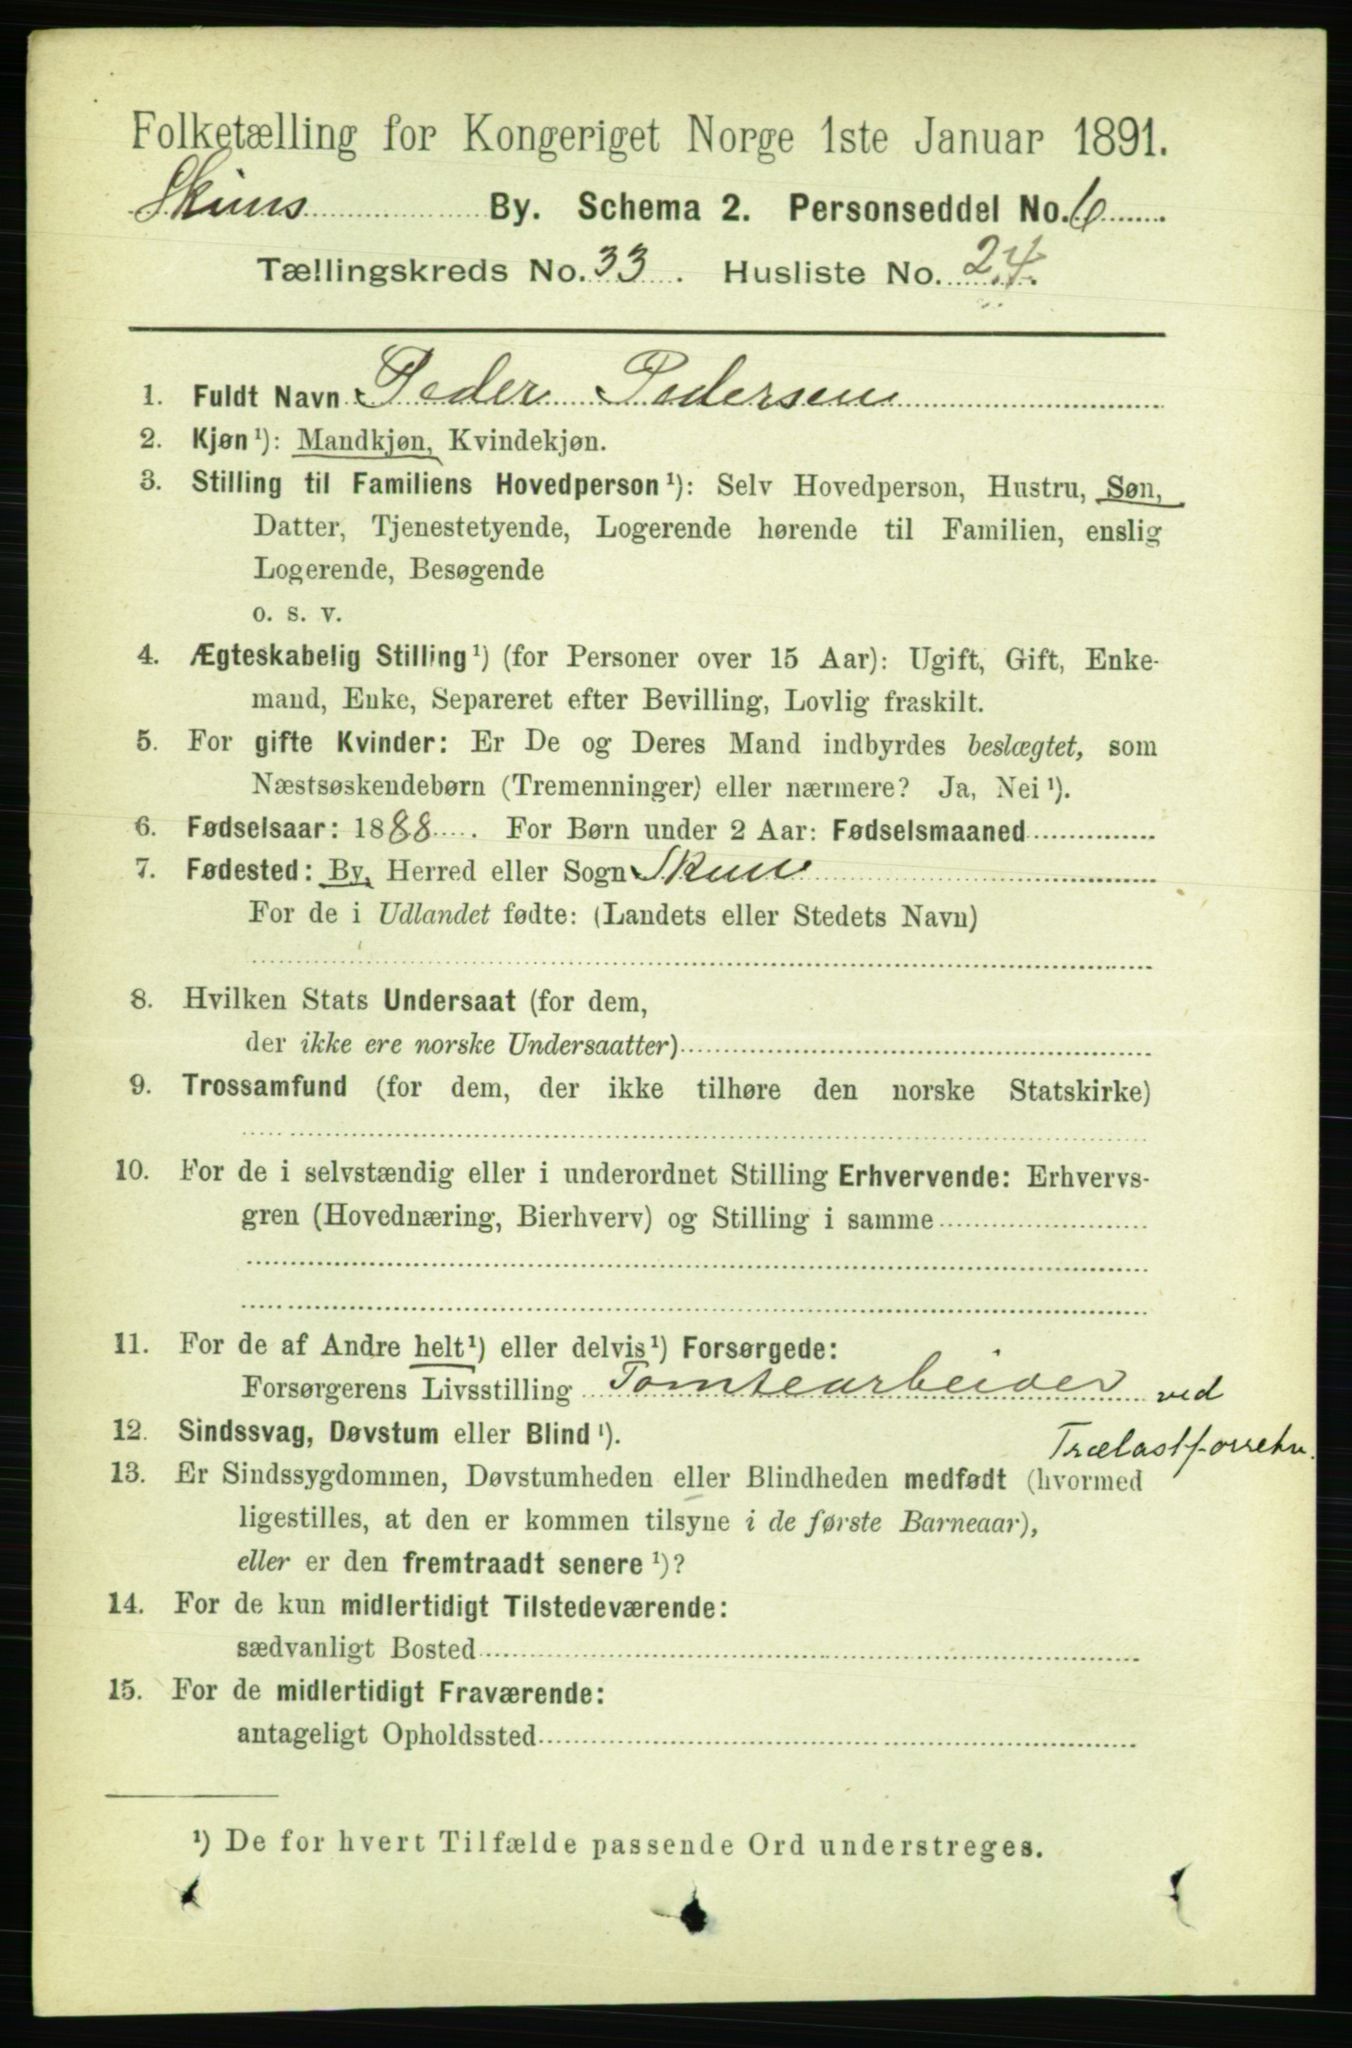 Folketælling for Kongeriget Norge 1ste Januar 1891.
Skiens By. Schema 2. Personseddel No. 6
Tællingskreds No. 33. Husliste No. 24.
1. Fuldt Navn Peder Pedersen
2. Kjøn ¹): Mandkjøn, Kvindekjøn.
3. Stilling til Familiens Hovedperson ¹): Selv Hovedperson, Hustru, Søn,
Datter, Tjenestetyende, Logerende hørende til Familien, enslig
Logerende, Besøgende
o. s. v.
4. Ægteskabelig Stilling ¹) (for Personer over 15 Aar): Ugift, Gift, Enke-
mand, Enke, Separeret efter Bevilling, Lovlig fraskilt.
5. For gifte Kvinder: Er De og Deres Mand indbyrdes beslægtet, som
Næstsøskendebørn (Tremenninger) eller nærmere? Ja, Nei ¹).
6. Fødselsaar: 1888. For Børn under 2 Aar: Fødselsmaaned
7. Fødested: By, Herred eller Sogn Skien
For de i Udlandet fødte: (Landets eller Stedets Navn)
8. Hvilken Stats Undersaat (for dem,
der ikke ere norske Undersaatter)
9. Trossamfund (for dem, der ikke tilhøre den norske Statskirke)
10. For de i selvstændig eller i underordnet Stilling Erhvervende: Erhvervs-
gren (Hovednæring, Bierhverv) og Stilling i samme
11. For de af Andre helt ¹) eller delvis ¹) Forsørgede:
Forsørgerens Livsstilling Tomtearbeider ved
Trælastforretn.
12. Sindssvag, Døvstum eller Blind ¹).
13. Er Sindssygdommen, Døvstumheden eller Blindheden medfødt (hvormed
ligestilles, at den er kommen tilsyne i de første Barneaar),
eller er den fremtraadt senere ¹)?
14. For de kun midlertidigt Tilstedeværende:
sædvanligt Bosted
15. For de midlertidigt Fraværende:
antageligt Opholdssted
¹) De for hvert Tilfælde passende Ord understreges.